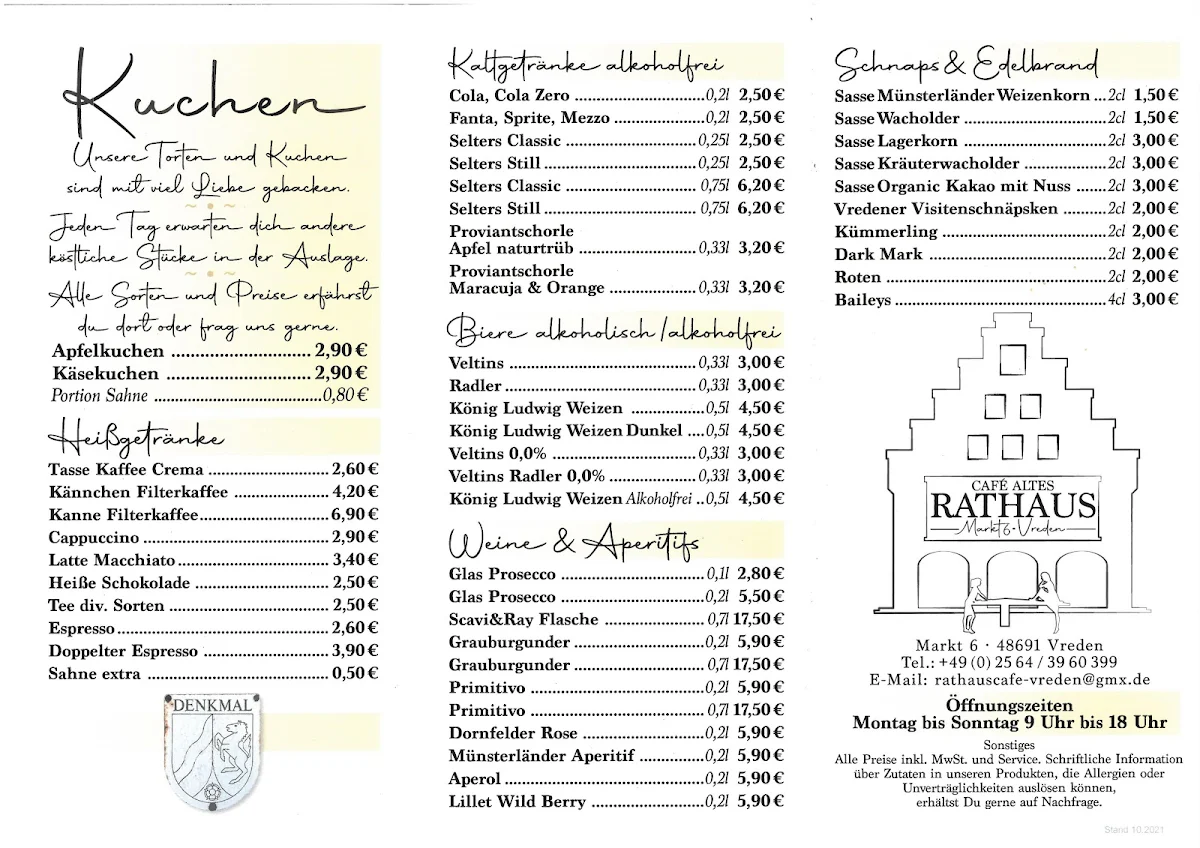 Kuchen
Unsere Torten und Kuchen
sind mit viel Liebe gebacken.
Jeden Tag erwarten dich andere
köstliche Stücke in der Auslage.
Alle Sorten und Preise erfährst
du dort oder frag uns gerne.
Apfelkuchen ................................ 2,90 €
Käsekuchen ................................ 2,90 €
Portion Sahne ......................................0,80 €
Heißgetränke
Tasse Kaffee Crema ............................ 2,60 €
Kännchen Filterkaffee ...................... 4,20 €
Kanne Filterkaffee.............................. 6,90 €
Cappuccino .......................................... 2,90 €
Latte Macchiato................................... 3,40 €
Heiße Schokolade ............................... 2,50 €
Tee div. Sorten .................................... 2,50 €
Espresso................................................. 2,60 €
Doppelter Espresso ............................ 3,90 €
Sahne extra .......................................... 0,50 €
DENKMAL
Kaltgetränke alkoholfrei
Cola, Cola Zero ..............................0,2l 2,50 €
Fanta, Sprite, Mezzo .....................0,2l 2,50 €
Selters Classic ..............................0,25l 2,50 €
Selters Still...................................0,25l 2,50 €
Selters Classic ..............................0,75l 6,20 €
Selters Still................................... 0,75l 6,20 €
Proviantschorle
Apfel naturtrüb ...........................0,33l 3,20 €
Proviantschorle
Maracuja & Orange ....................0,33l 3,20 €
Biere alkoholisch/alkoholfrei
Veltins ...........................................0,33l 3,00 €
Radler............................................0,33l 3,00 €
König Ludwig Weizen .................0,5l 4,50 €
König Ludwig Weizen Dunkel ....0,5l 4,50 €
Veltins 0,0% .................................0,33l 3,00 €
Veltins Radler 0,0% .....................0,33l 3,00 €
König Ludwig Weizen Alkoholfrei ..0,5l 4,50 €
Weine & Aperitifs
Glas Prosecco .................................0,1l 2,80 €
Glas Prosecco .................................0,2l 5,50 €
Scavi&Ray Flasche .......................0,7l 17,50 €
Grauburgunder ..............................0,2l 5,90 €
Grauburgunder ..............................0,7l 17,50 €
Primitivo ........................................0,2l 5,90 €
Primitivo ........................................0,7l 17,50 €
Dornfelder Rose ............................0,2l 5,90 €
Münsterländer Aperitif ...............0,2l 5,90 €
Aperol..............................................0,2l 5,90 €
Lillet Wild Berry ..........................0,2l 5,90 €
Schnaps & Edelbrand
Sasse Münsterländer Weizenkorn ...2cl 1,50 €
Sasse Wacholder .................................2cl 1,50 €
Sasse Lagerkorn .................................2cl 3,00 €
Sasse Kräuterwacholder ...................2cl 3,00 €
Sasse Organic Kakao mit Nuss .......2cl 3,00 €
Vredener Visitenschnäpsken ..........2cl 2,00 €
Kümmerling ......................................2cl 2,00 €
Dark Mark .........................................2cl 2,00 €
Roten ...................................................2cl 2,00 €
Baileys .................................................4cl 3,00 €
CAFÉ ALTES
RATHAUS
Markt 6 · Vreden
Markt 6 · 48691 Vreden
Tel.: +49 (0) 25 64 / 39 60 399
E-Mail: rathauscafe-vreden@gmx.de
Öffnungszeiten
Montag bis Sonntag 9 Uhr bis 18 Uhr
Sonstiges
Alle Preise inkl. MwSt. und Service. Schriftliche Information
über Zutaten in unseren Produkten, die Allergien oder
Unverträglichkeiten auslösen können,
erhältst Du gerne auf Nachfrage.
Stand 10.2021